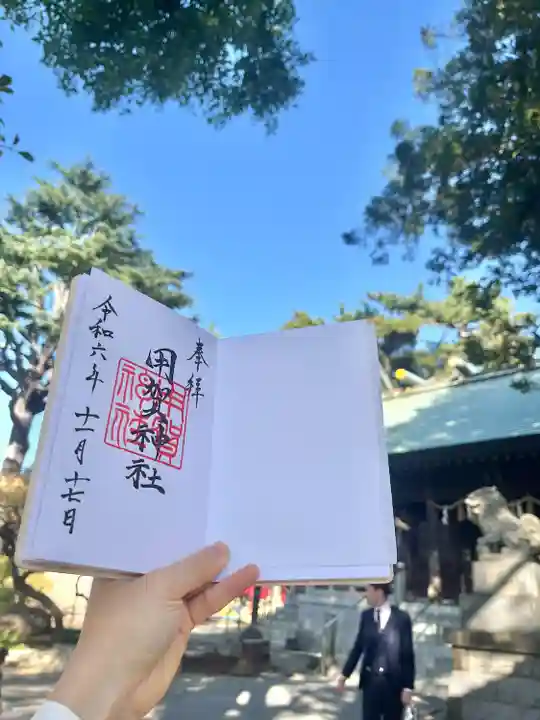 奉拝
用賀神社
用賀
神社
令和六年 十一月 十七日